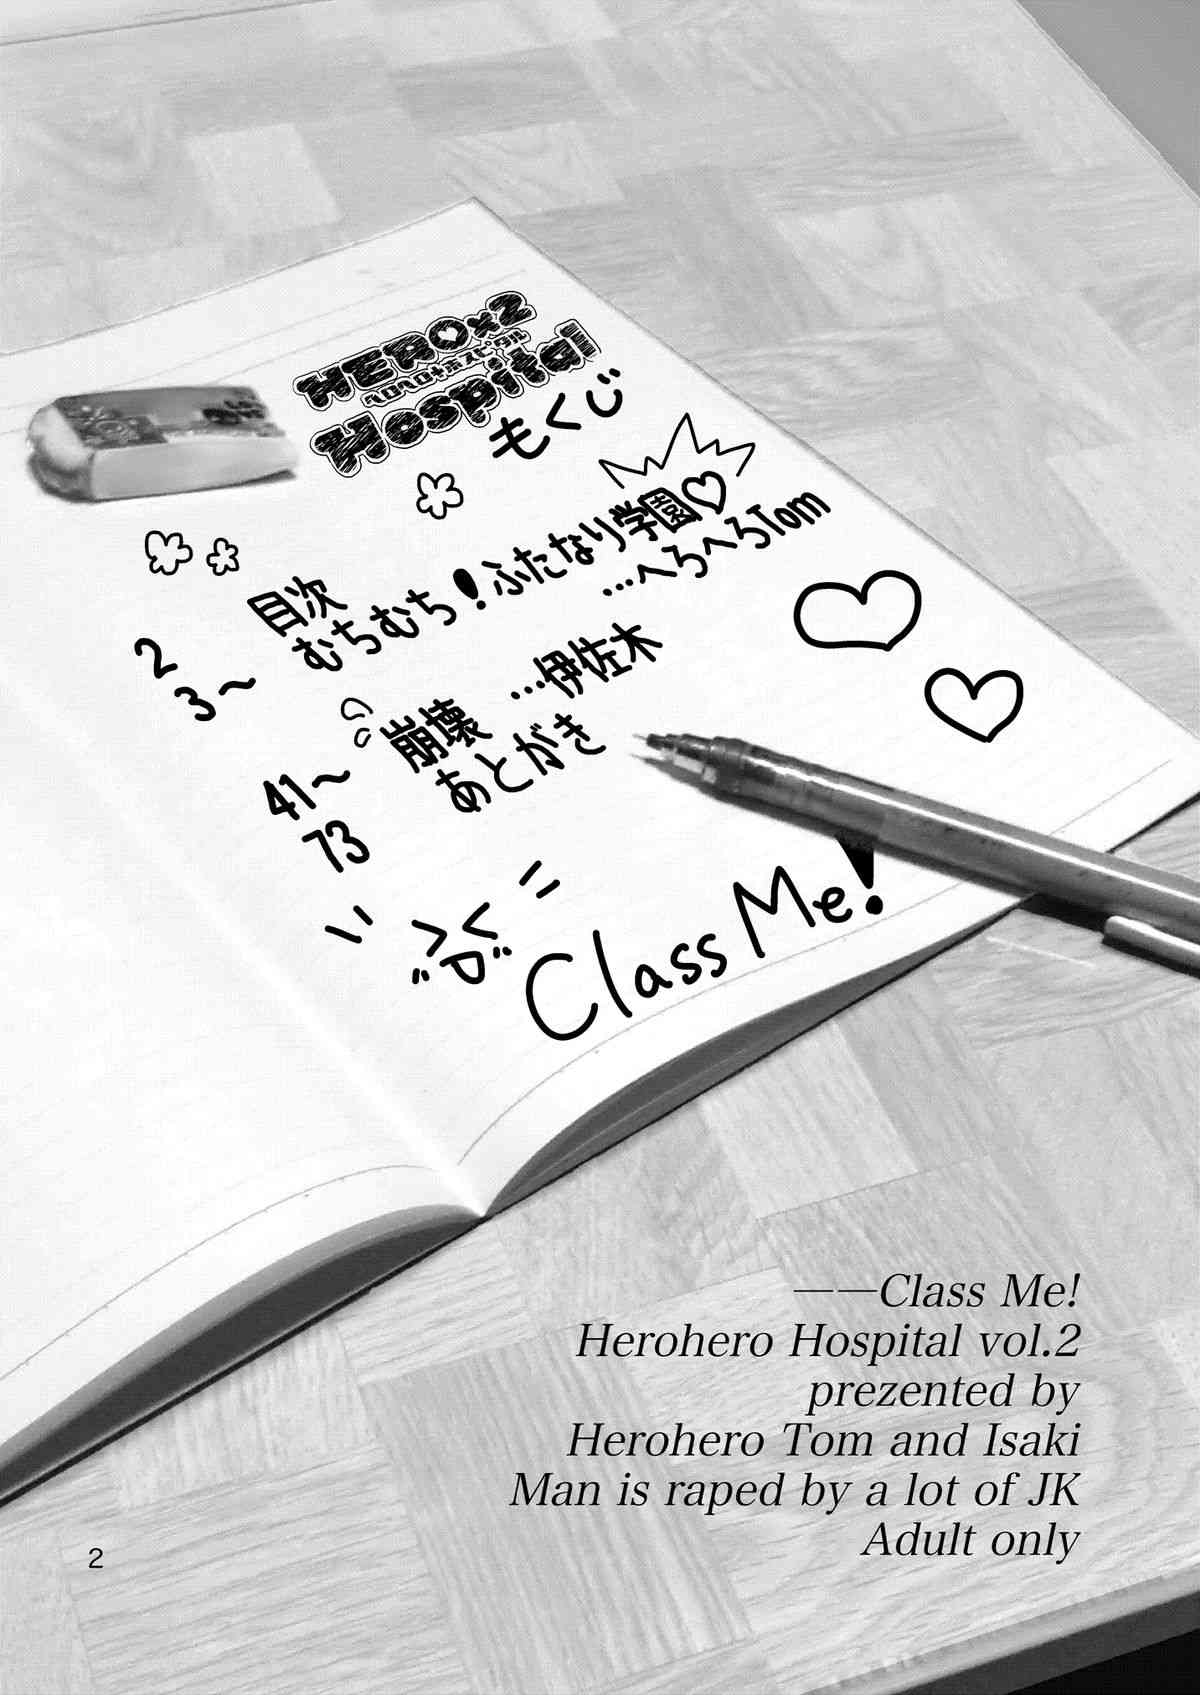 HERO×2
ヘロヘロ+ホスピタル
Hospital
もくじ
2 目次
3～ むちむち!ふたなり学園♡
…へろへろTom
41～ 崩壊 …伊佐木
73 あとがき
Class Me!
――Class Me!
Herohero Hospital vol.2
prezented by
Herohero Tom and Isaki
Man is raped by a lot of JK
Adult only
2